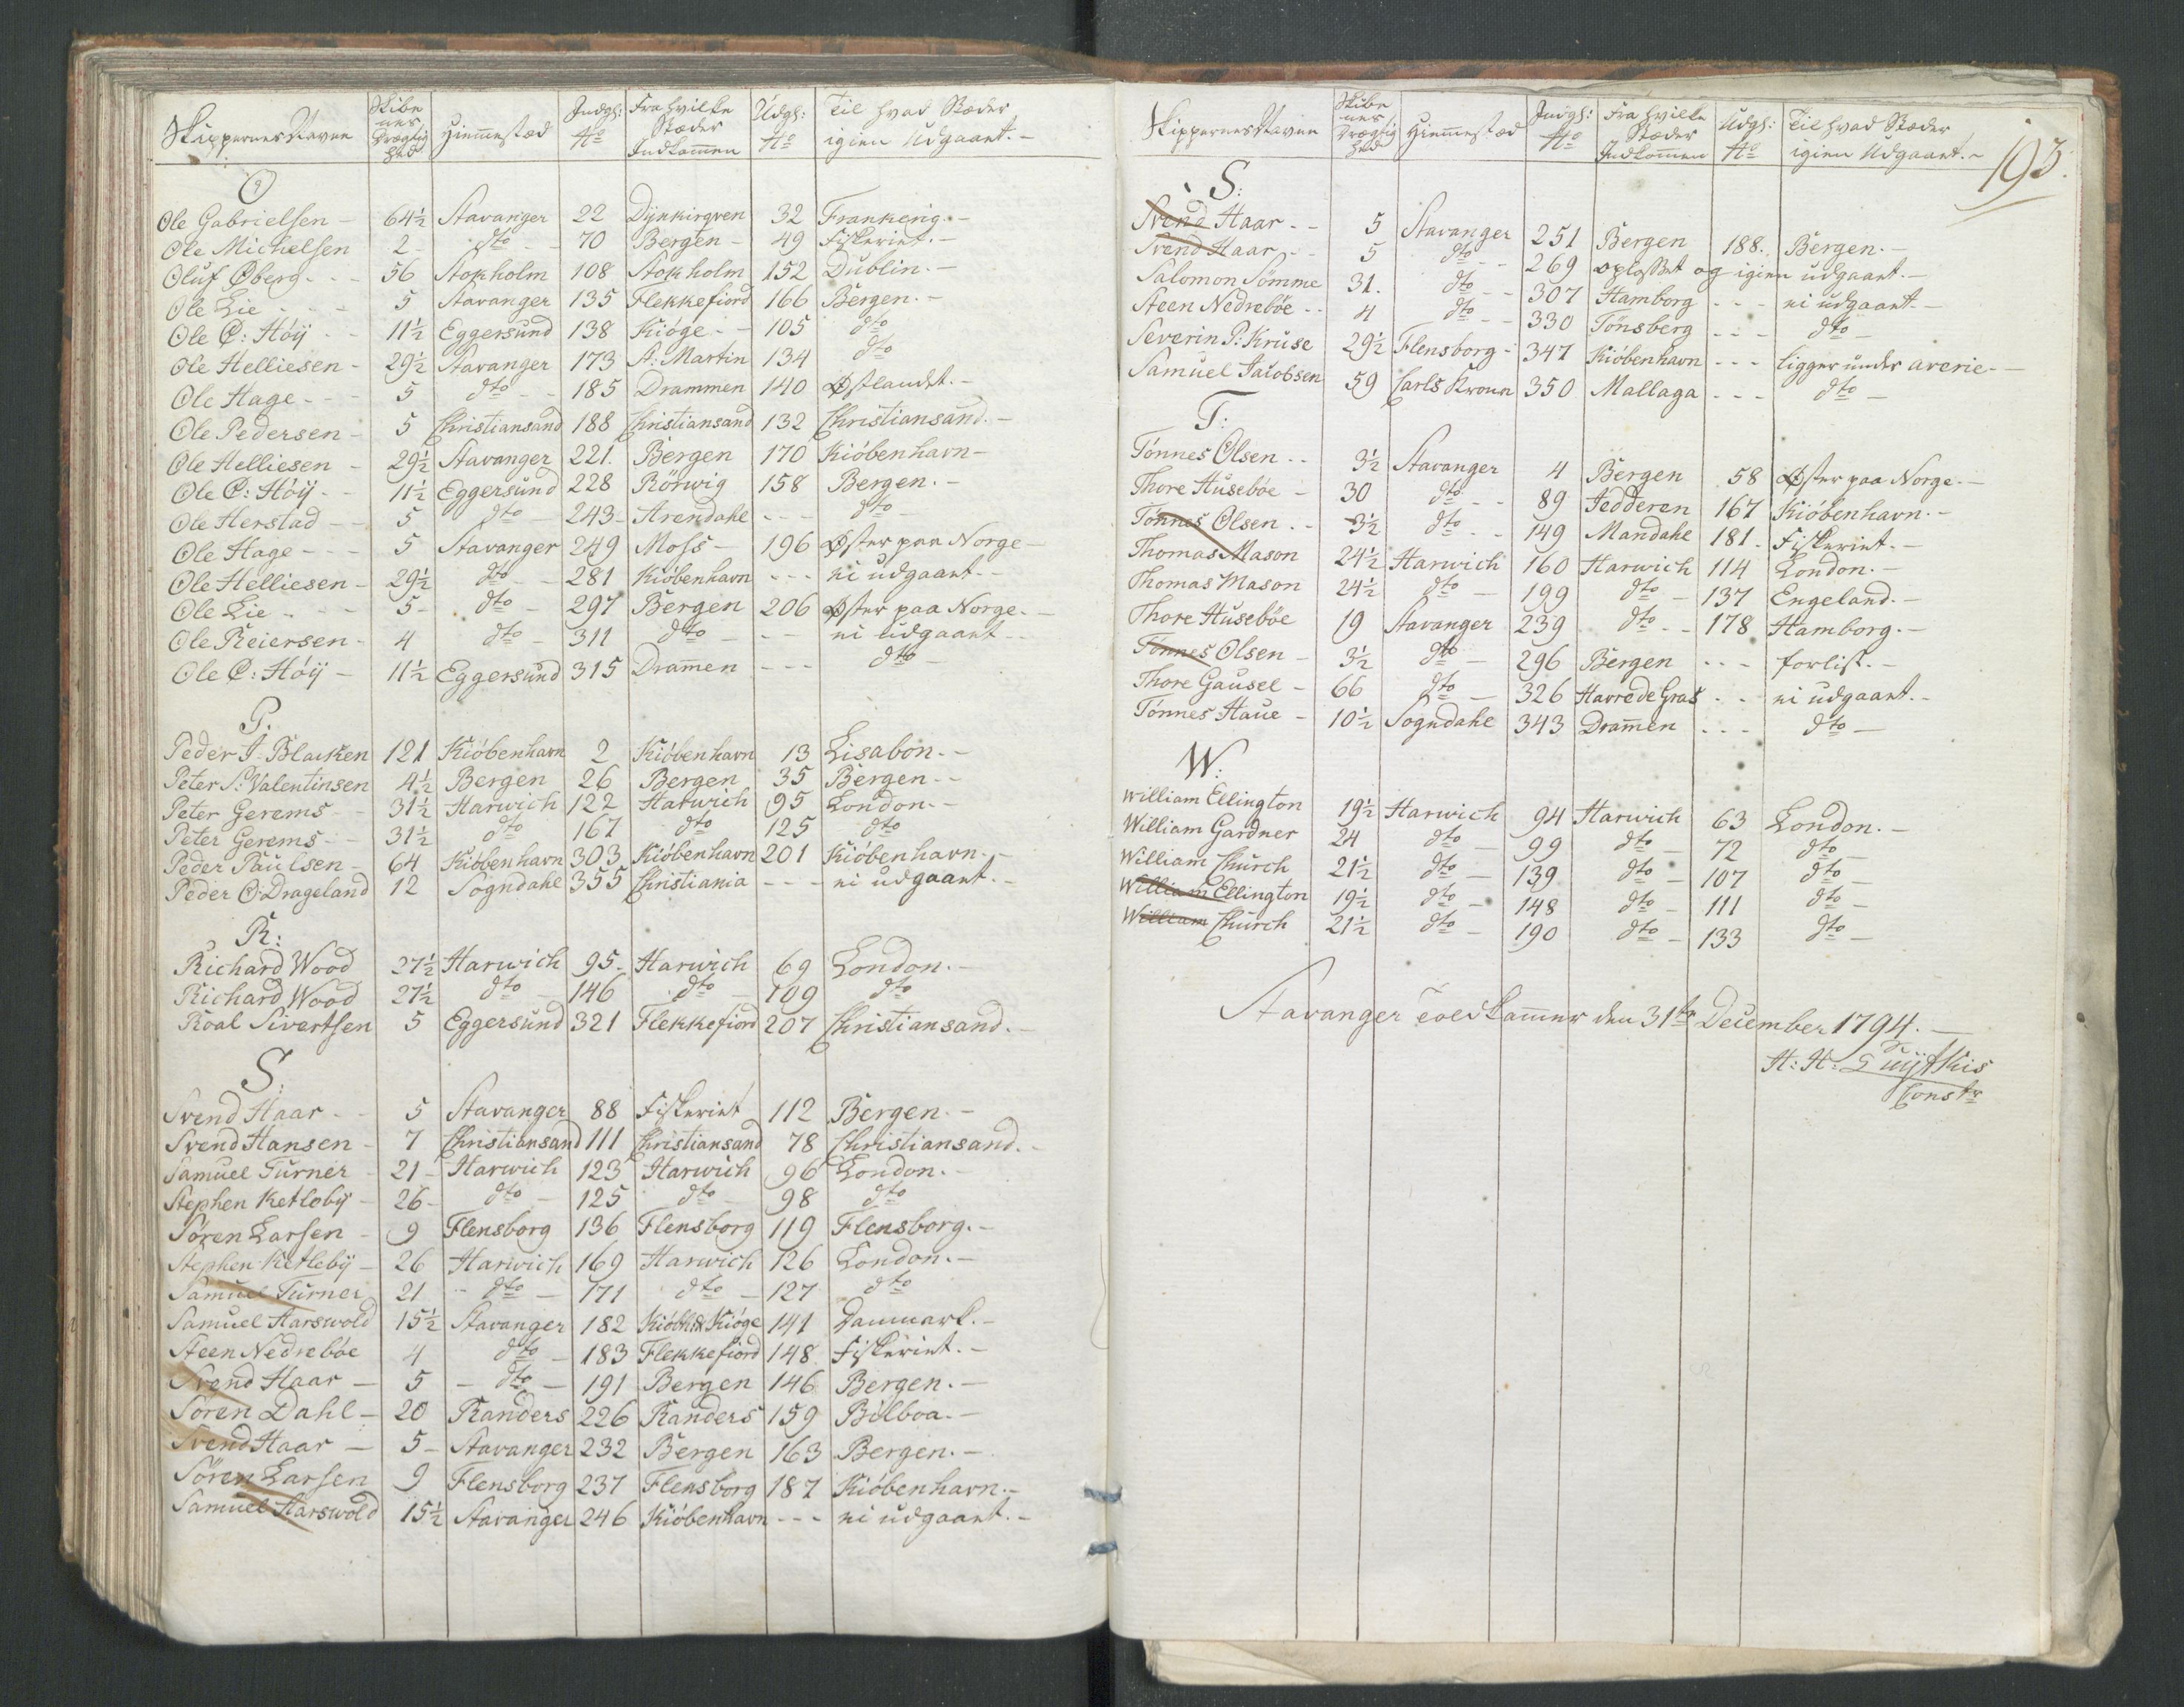 Skippernes Navne | Skibenes Drægtighed | Hiemmestæd | Indgl: No | Fra hvilke Stæder Indkommen | Udgl: No | Til hvad Stæder igien Udgaaet.-
O
Ole Gabrielsen - 64½ Stavanger 22 Dÿnkirqven 32 Frankerig.-
Ole Michelsen 2 - dto - 70 Bergen - 49 Fiskeriet.-
Oluf Øberg - - 56 Stokholm 108 Stokholm 152 Dublin.-
Ole Lie - - 5 Stavanger 135 Flekkefiord 166 Bergen.-
Ole C: Höÿ - - 11½ Eggersund 138 Kiöge - - 105 dto
Ole Helliesen - 29½ Stavanger 173 St: Martin 134 dto
Ole Hage - - - 5 dto - - 185 Drammen 140 Østlandet.-
Ole Pedersen - 5 Christiansand 188 Christiansand 132 Christiansand.-
Ole Helliesen - 29½ Stavanger 221. Bergen 170 Kiöbenhavn -
Ole C: Höÿ - - 11½ Eggersund 228 Rörwig 158 Bergen.-
Ole Herstad - - 5 dto - 243 - Arendahl - - - dto -
Ole Hage - - - 5 Stavanger 249 Moss - 196 Øster paa Norge -
Ole Helliesen - 29½ dto - - 281 Kiöbenhavn - - - ei udgaaet.-
Ole Lie - - - 5 - dto - 297 Bergen 206 Øster paa Norge.-
Ole Reiersen - 4 dto - 311 dto - - - ei udgaaet - -
Ole C: Höÿ - 11½ Eggersund 315 Dramen - - - dto -
P:
Peder J: Blacken 121 Kiöbenhavn 2 Kiöbenhavn 13 Lisabon.-
Peter S: Valentinsen 4½ Bergen 26 Bergen 35 Bergen - -
Peter Gerems - - 31½ Harwich 122 Harwich 95 London.-
Peter Gerems - - 31½ dto 167 dto 125 dto
Peder Paulsen - 64 Kiöbenhavn 303 Kiöbenhavn 201 Kiöbenhavn.-
Peder O: Drageland 12 Sogndahl 355 Christiania - - - ei udgaaet.-
R:
Richard Wood 27½ Harwich 95. Harwich 69 London.-
Richard Wood 27½ dto - 146 dto - 109 dto
Roal Sivertsen 5 Eggersund 321 Flekkefiord 207 Christiansand.-
S:
Svend Haar - - 5 Stavanger 88 Fiskeriet 112 Bergen -
Svend Hansen - 7 Christiansand 111 Christiansand 78 Christiansand.-
Samuel Turner - 21 - Harwich 123 Harwich 96 London.-
Stephen Ketlebÿ - 26 - dto - 125 dto - 98 dto
Sören Larsen - 9 Flensborg 136 Flensborg 119 Flensborg.-
Stephen Ketlebÿ - 26 Harwich 169 Harwich 126 London.-
Samuel Turner 21 - dto - 171 dto - 127 dto
Samuel Harswold 15½ Stavanger 182 Kiöbh & Kiöge 141 Danmark.-
Steen Nedreböe 4 dto - 183 Flekkefiord 148 Fiskeriet.-
Svend Haar - 5 - dto - 191 Bergen 146 Bergen.-
Sören Dahl - 20 Randers 226 Randers 159 Bilboa.-
Svend Haar - 5 - Stavanger 232 Bergen 163 Bergen.-
Sören Larsen 9 Flensborg 237 Flensborg 187 Kiöbenhavn.-
Samuel Harswold 15½ Stavanger 246 Kiöbenhavn - - - ei udgaaet.-
193.
Skippernes Navne | Skibenes Drægtighed | Hiemmestæd | Indgl: No | Fra hvilke Stæder Indkommen | Udgl: No | Til hvad Stæder igien Udgaaet.-
S:
Svend Haar - - 5 Stavanger 251 Bergen 188. Bergen.-
Svend Haar - - 5 dto - - 269 oplosset og igien udgaaet.-
Salomon Sömme 31. dto - - 307 Hamborg - - - ei udgaaet -
Steen Nedreböe - - 4 dto - - 330 Tönsberg - - - dto -
Severin P: Kruse 29½ Flensborg - 347 Kiöbenhavn - - - ligger under averie.-
Samuel Jacobsen 59 Carls Kronen 350 Mallaga - - - dto -
T:
Tönnes Olsen - - 3½ Stavanger 4 Bergen 58 Øster paa Norge.-
Thore Huseböe - 30 dto - - 89 Jedderen 167 Kiöbenhavn.-
Tönnes Olsen - - 3½ dto - - 149 Mandahl 181. Fiskeriet.-
Thomas Mason 24½ Harwich 160 Harwich 114 London.-
Thomas Mason 24½ dto - 199 dto - 137 Engeland.-
Thore Huseböe 19 Stavanger 239 dto - - 178 Hamborg.-
Tönnes Olsen - 3½ dto - 296 Bergen - - - forlist.-
Thore Gausel - 66 dto - 326 Havre de Gras - - ei udgaaet.-
Tönnes Haue - 10½ Sogndahl 343 Dramen - - - dto -
W:
William Ellington 19½ Harwich 94 Harwich 63 London.-
William Gardner 24 dto - 99 dto - 72 dto -
William Church 21½ dto - 139 dto - 107 dto -
William Ellington 19½ dto - 148 dto - 111 dto -
William Church 21½ dto - 190 dto - 133 dto -
Stavanger Toldkammer den 31te December 1794.-
H: H:
Const